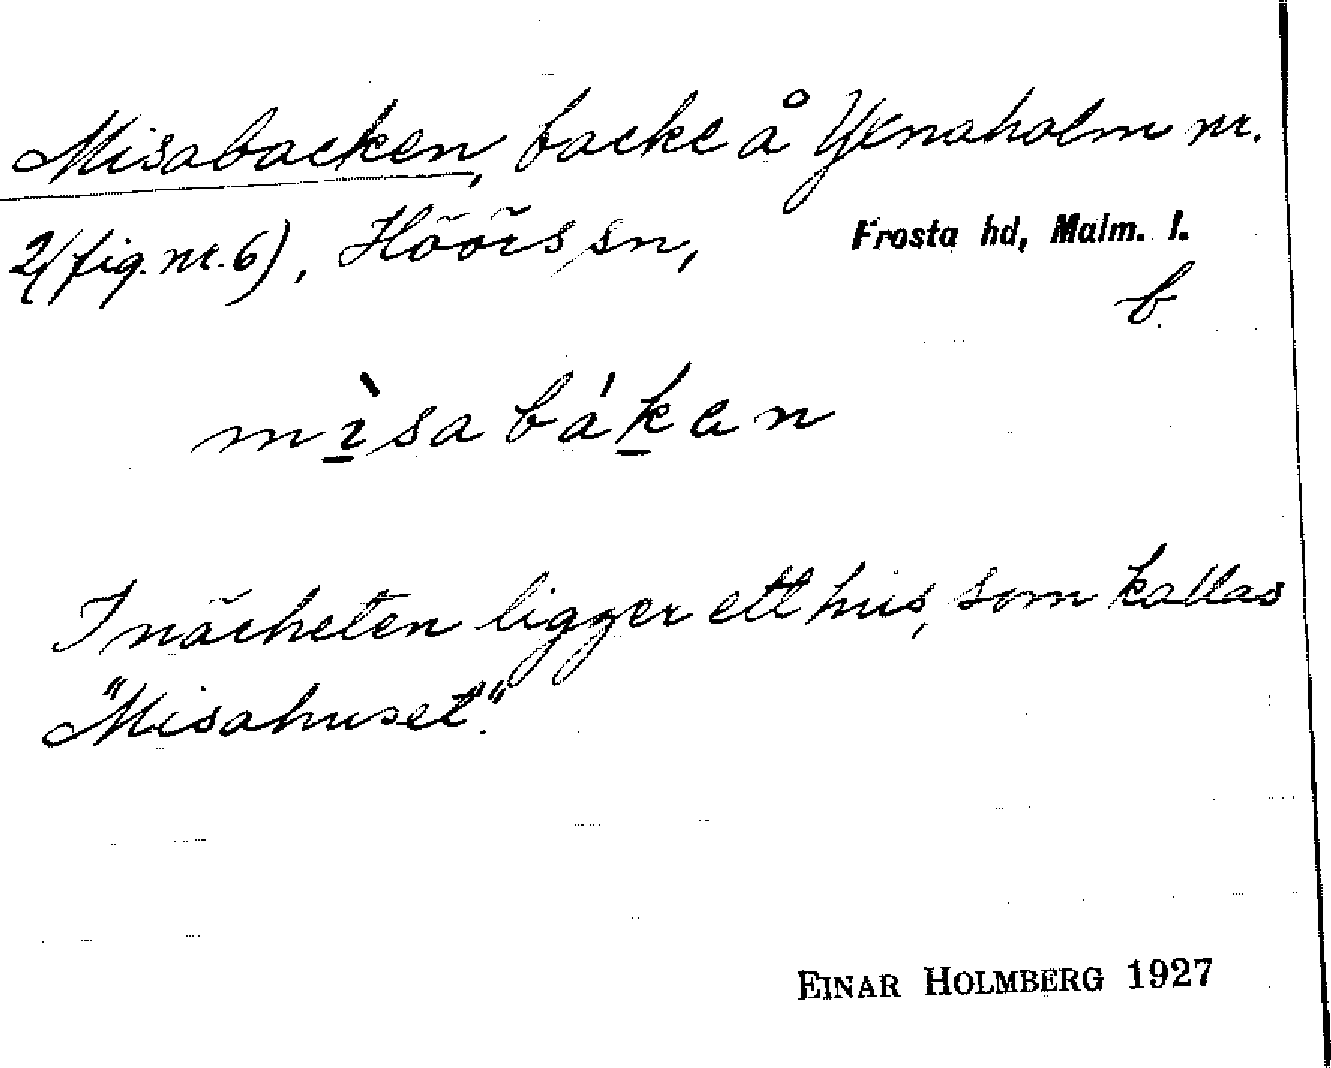 Misabacken, backe å Yxnaholm nr.
2 (fig. nr. 6), Höörs sn, Frosta hd, Malm. l.
b.
mìsabákan
I närheten ligger ett hus, som kallas
"Misahuset".
EINAR HOLMBERG 1927